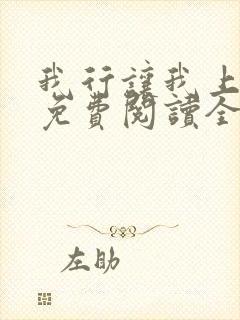 我行讓我上
免費閱讀全
左助